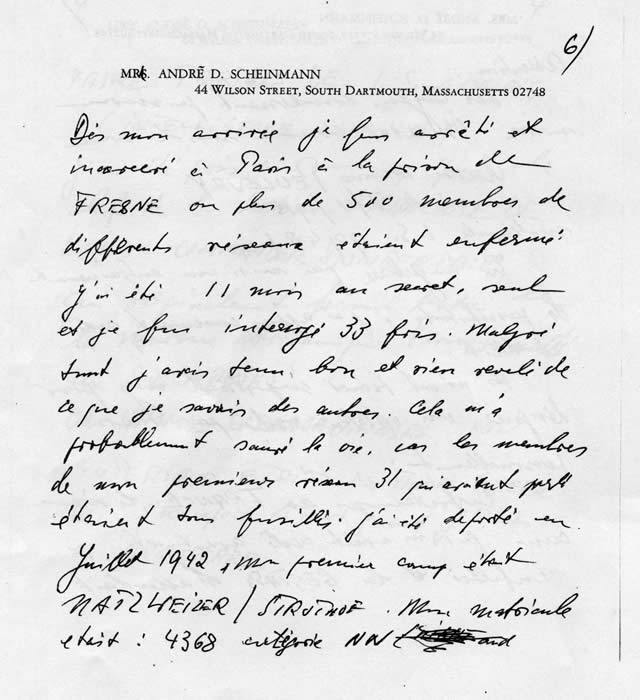 6/
MRS. ANDRÉ D. SCHEINMANN
44 WILSON STREET, SOUTH DARTMOUTH, MASSACHUSETTS 02748
Dès mon arrivée je fus arrêté et
incarcéré à Paris à la prison de
FRESNE ou plus de 500 membres de
différents réseaux étaient enfermé.
J'ai été 11 mois au secret, seul
et je fus interrogé 33 fois. Malgré
tout j'avais tenu bon et rien revelé de
ce que je savais des autres. Cela m'a
probablement sauvé la vie, car les membres
de mon premiers réseau 31 qui avaient
étaient tous fusillés. j'ai été deporté en
Juillet 1942, Mon premier camp était
NATZWEILER / STRUTHOF. Mon matricule
etait : 4368 catégorie NN and